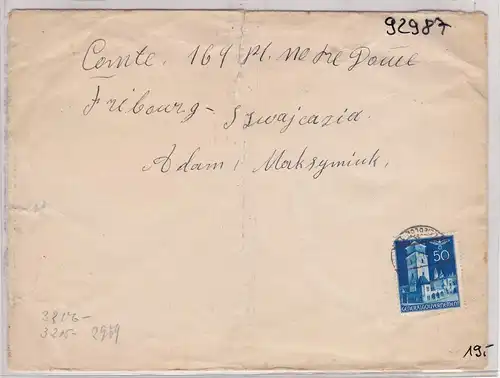 92987
Comte. 164 Pl. Notre Dome
Fribourg - Szwajcazia.
Adam, Maksymiuk,
50
GENERALGOUVERNEMENT
3215- 2979
19.-